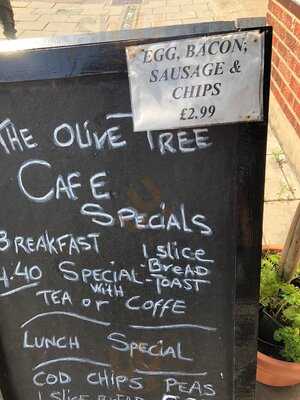 EGG, BACON,
SAUSAGE &
CHIPS
£2.99
THE OLIVE TREE
CAFE
SPECIALS
BREAKFAST 1 SLICE
4.40 SPECIAL - BREAD
WITH - TOAST
TEA OR COFFE
LUNCH SPECIAL
COD CHIPS PEAS
1 SLICE BREAD